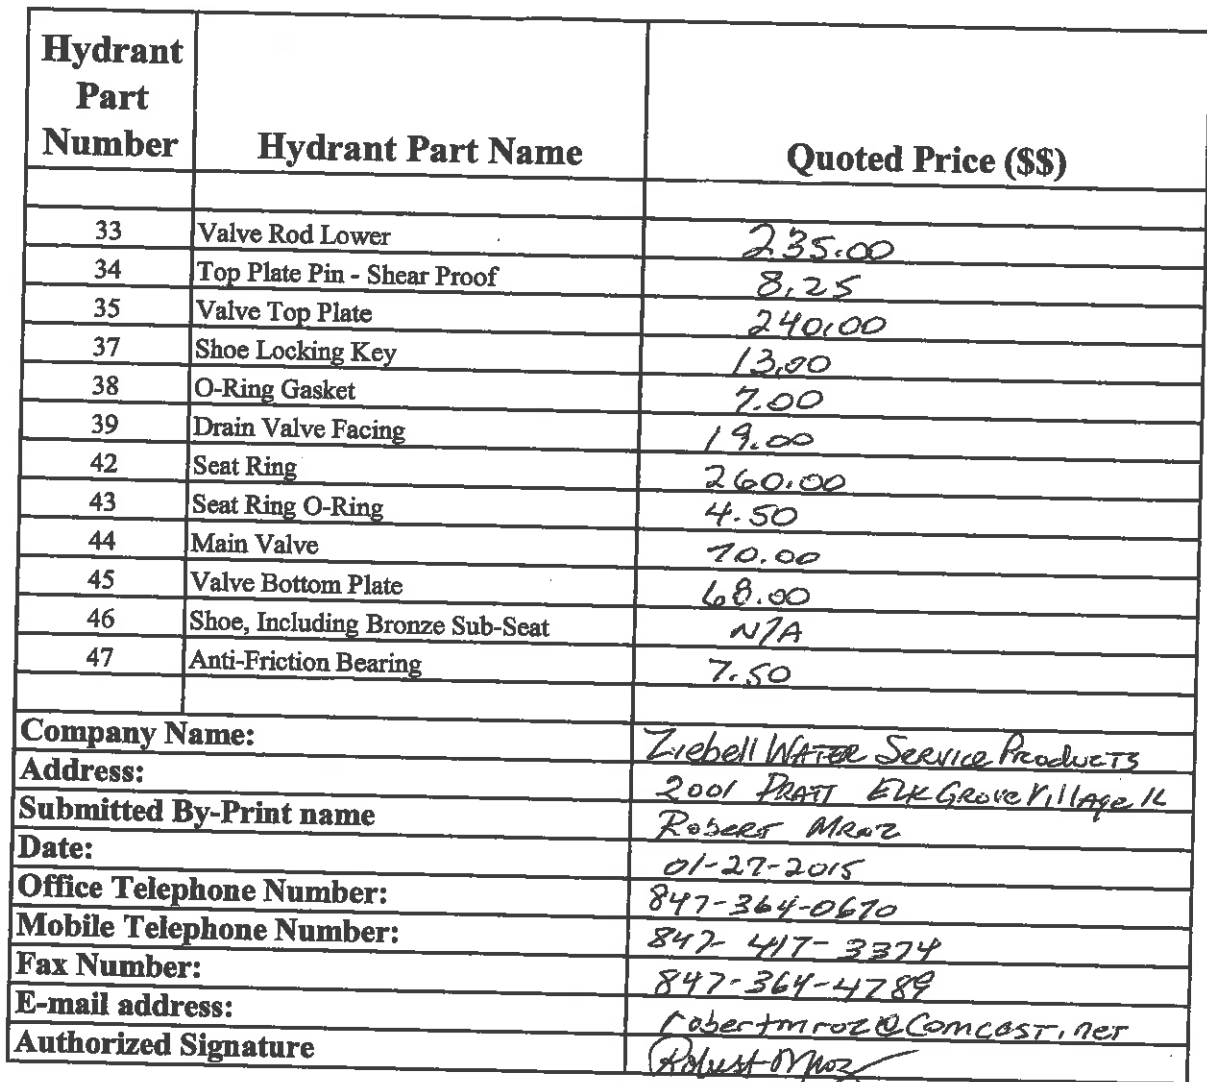 Hydrant
Part
Number
Hydrant Part Name
Quoted Price ($$)
33 Valve Rod Lower 235.00
34 Top Plate Pin - Shear Proof 8.25
35 Valve Top Plate 240.00
37 Shoe Locking Key 13.00
38 O-Ring Gasket 7.00
39 Drain Valve Facing 19.00
42 Seat Ring 260.00
43 Seat Ring O-Ring 4.50
44 Main Valve 70.00
45 Valve Bottom Plate 68.00
46 Shoe, Including Bronze Sub-Seat N/A
47 Anti-Friction Bearing 7.50
Company Name: Ziebell WATER SERVICE PRODUCTS
Address: 2001 PRATT ELK GROVE VIllAge IL
Submitted By-Print name Robert MROZ
Date: 01-27-2015
Office Telephone Number: 847-364-0670
Mobile Telephone Number: 847-417-3374
Fax Number: 847-364-4789
E-mail address: robertmroz@Comcast.net
Authorized Signature Robert Mroz